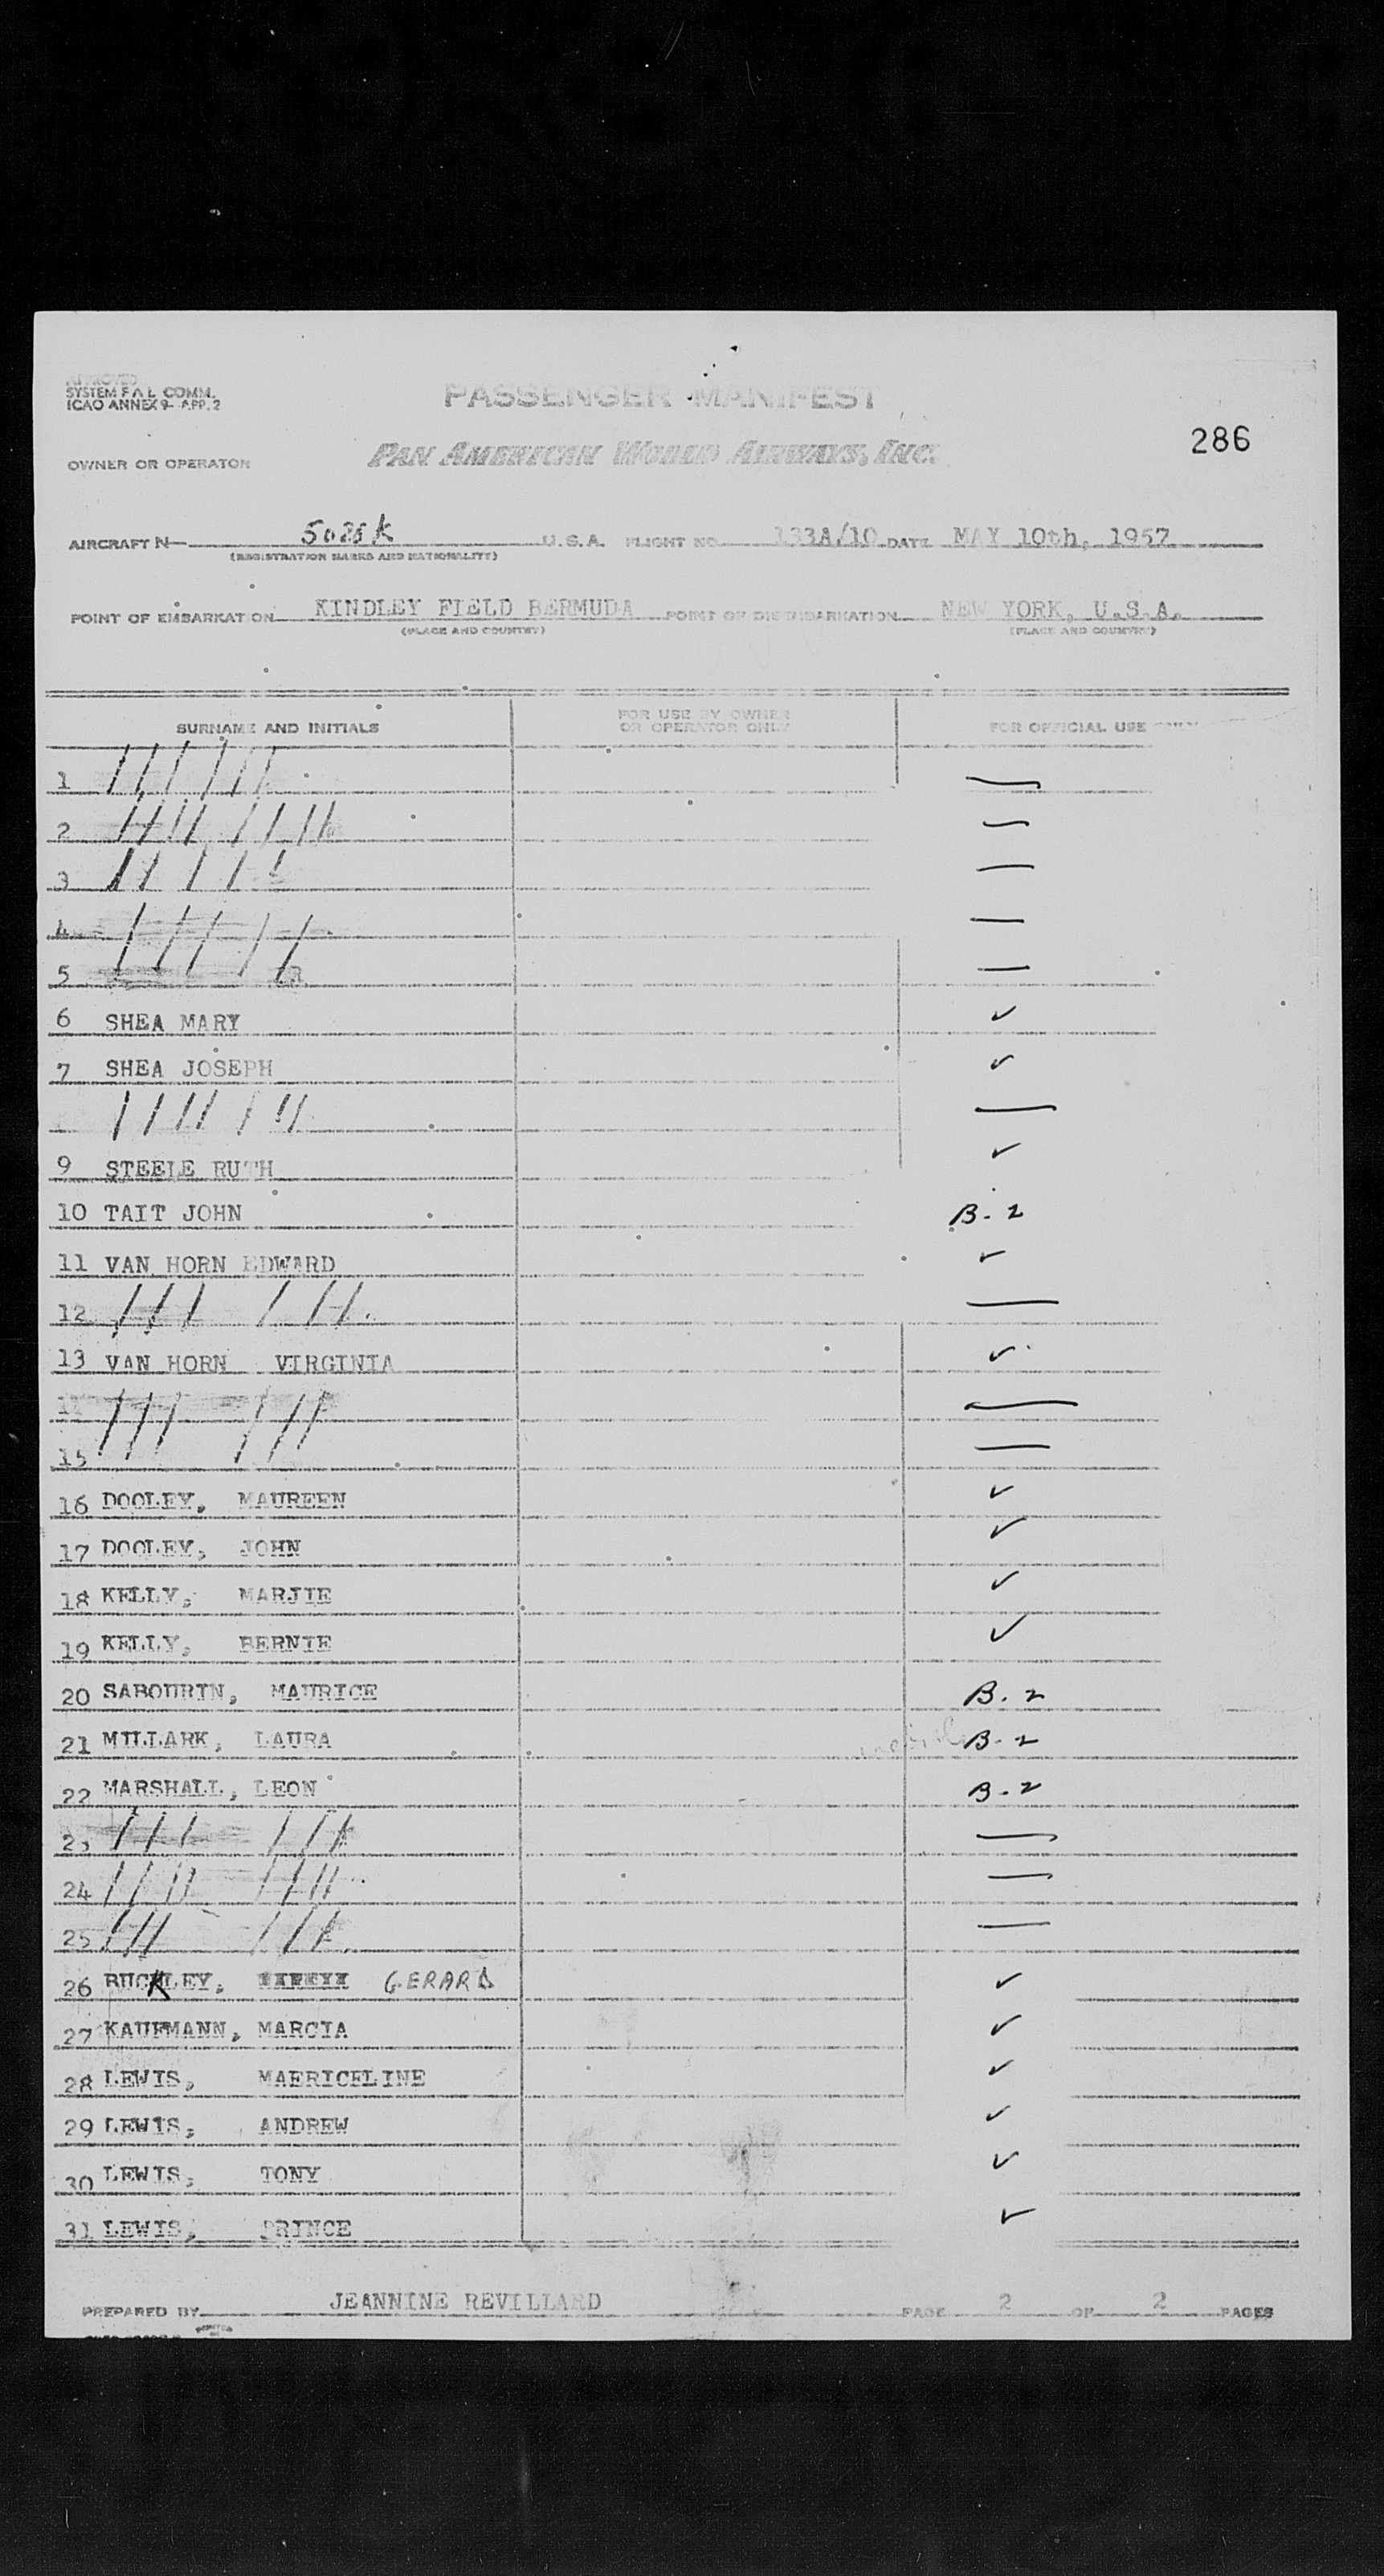 APPROVED
SYSTEM F A L COMM.
ICAO ANNEX 9- APP. 2
PASSENGER MANIFEST
286
OWNER OR OPERATOR PAN AMERICAN WORLD AIRWAYS, INC.
AIRCRAFT N- U.S.A. FLIGHT NO. 133A/10 DATE MAY 10th, 1957
(REGISTRATION MARKS AND NATIONALITY)
POINT OF EMBARKATION KINDLEY FIELD BERMUDA POINT OF DISEMBARKATION NEW YORK, U.S.A.
(PLACE AND COUNTRY) (PLACE AND COUNTRY)
SURNAME AND INITIALS FOR USE BY OWNER OR OPERATOR ONLY FOR OFFICIAL USE ONLY
1
2
3
4
5
6 SHEA MARY ✓
7 SHEA JOSEPH ✓
9 STEELE RUTH ✓
10 TAIT JOHN B-2
11 VAN HORN EDWARD ✓
12
13 VAN HORN VIRGINIA ✓
15
16 DOOLEY, MAUREEN ✓
17 DOOLEY, JOHN ✓
18 KELLY, MARJIE ✓
19 KELLY, BERNIE ✓
20 SABOURIN, MAURICE B-2
21 MILLARK, LAURA B-2
22 MARSHALL, LEON B-2
23
24
25
26 BUCKLEY, GERARD ✓
27 KAUFMANN, MARCIA ✓
28 LEWIS, MAERICELINE ✓
29 LEWIS, ANDREW ✓
30 LEWIS, TONY ✓
31 LEWIS, PRINCE ✓
PREPARED BY JEANNINE REVILLARD PAGE 2 OF 2 PAGES